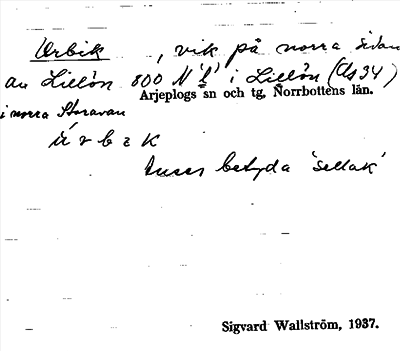 Orbik , vik på norra sidan
av Lillön 800 N 'l' i Lillön (Us 34)
Arjeplogs sn och tg, Norrbottens län.
i norra Storavan
betyda 'sellak'
Sigvard Wallström, 1937.